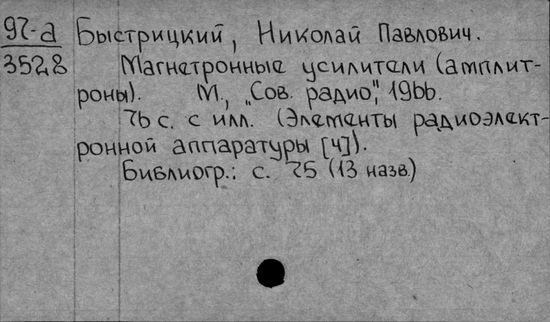 97-а Быстрицкий, Николай Павлович.
3528 Магнетронные усилители (амплит-
роны). М., „Сов. радио", 1966.
76 с. с илл. (Элементы радиоэлект-
ронной аппаратуры [4]).
Библиогр.: с. 75 (13 назв.)